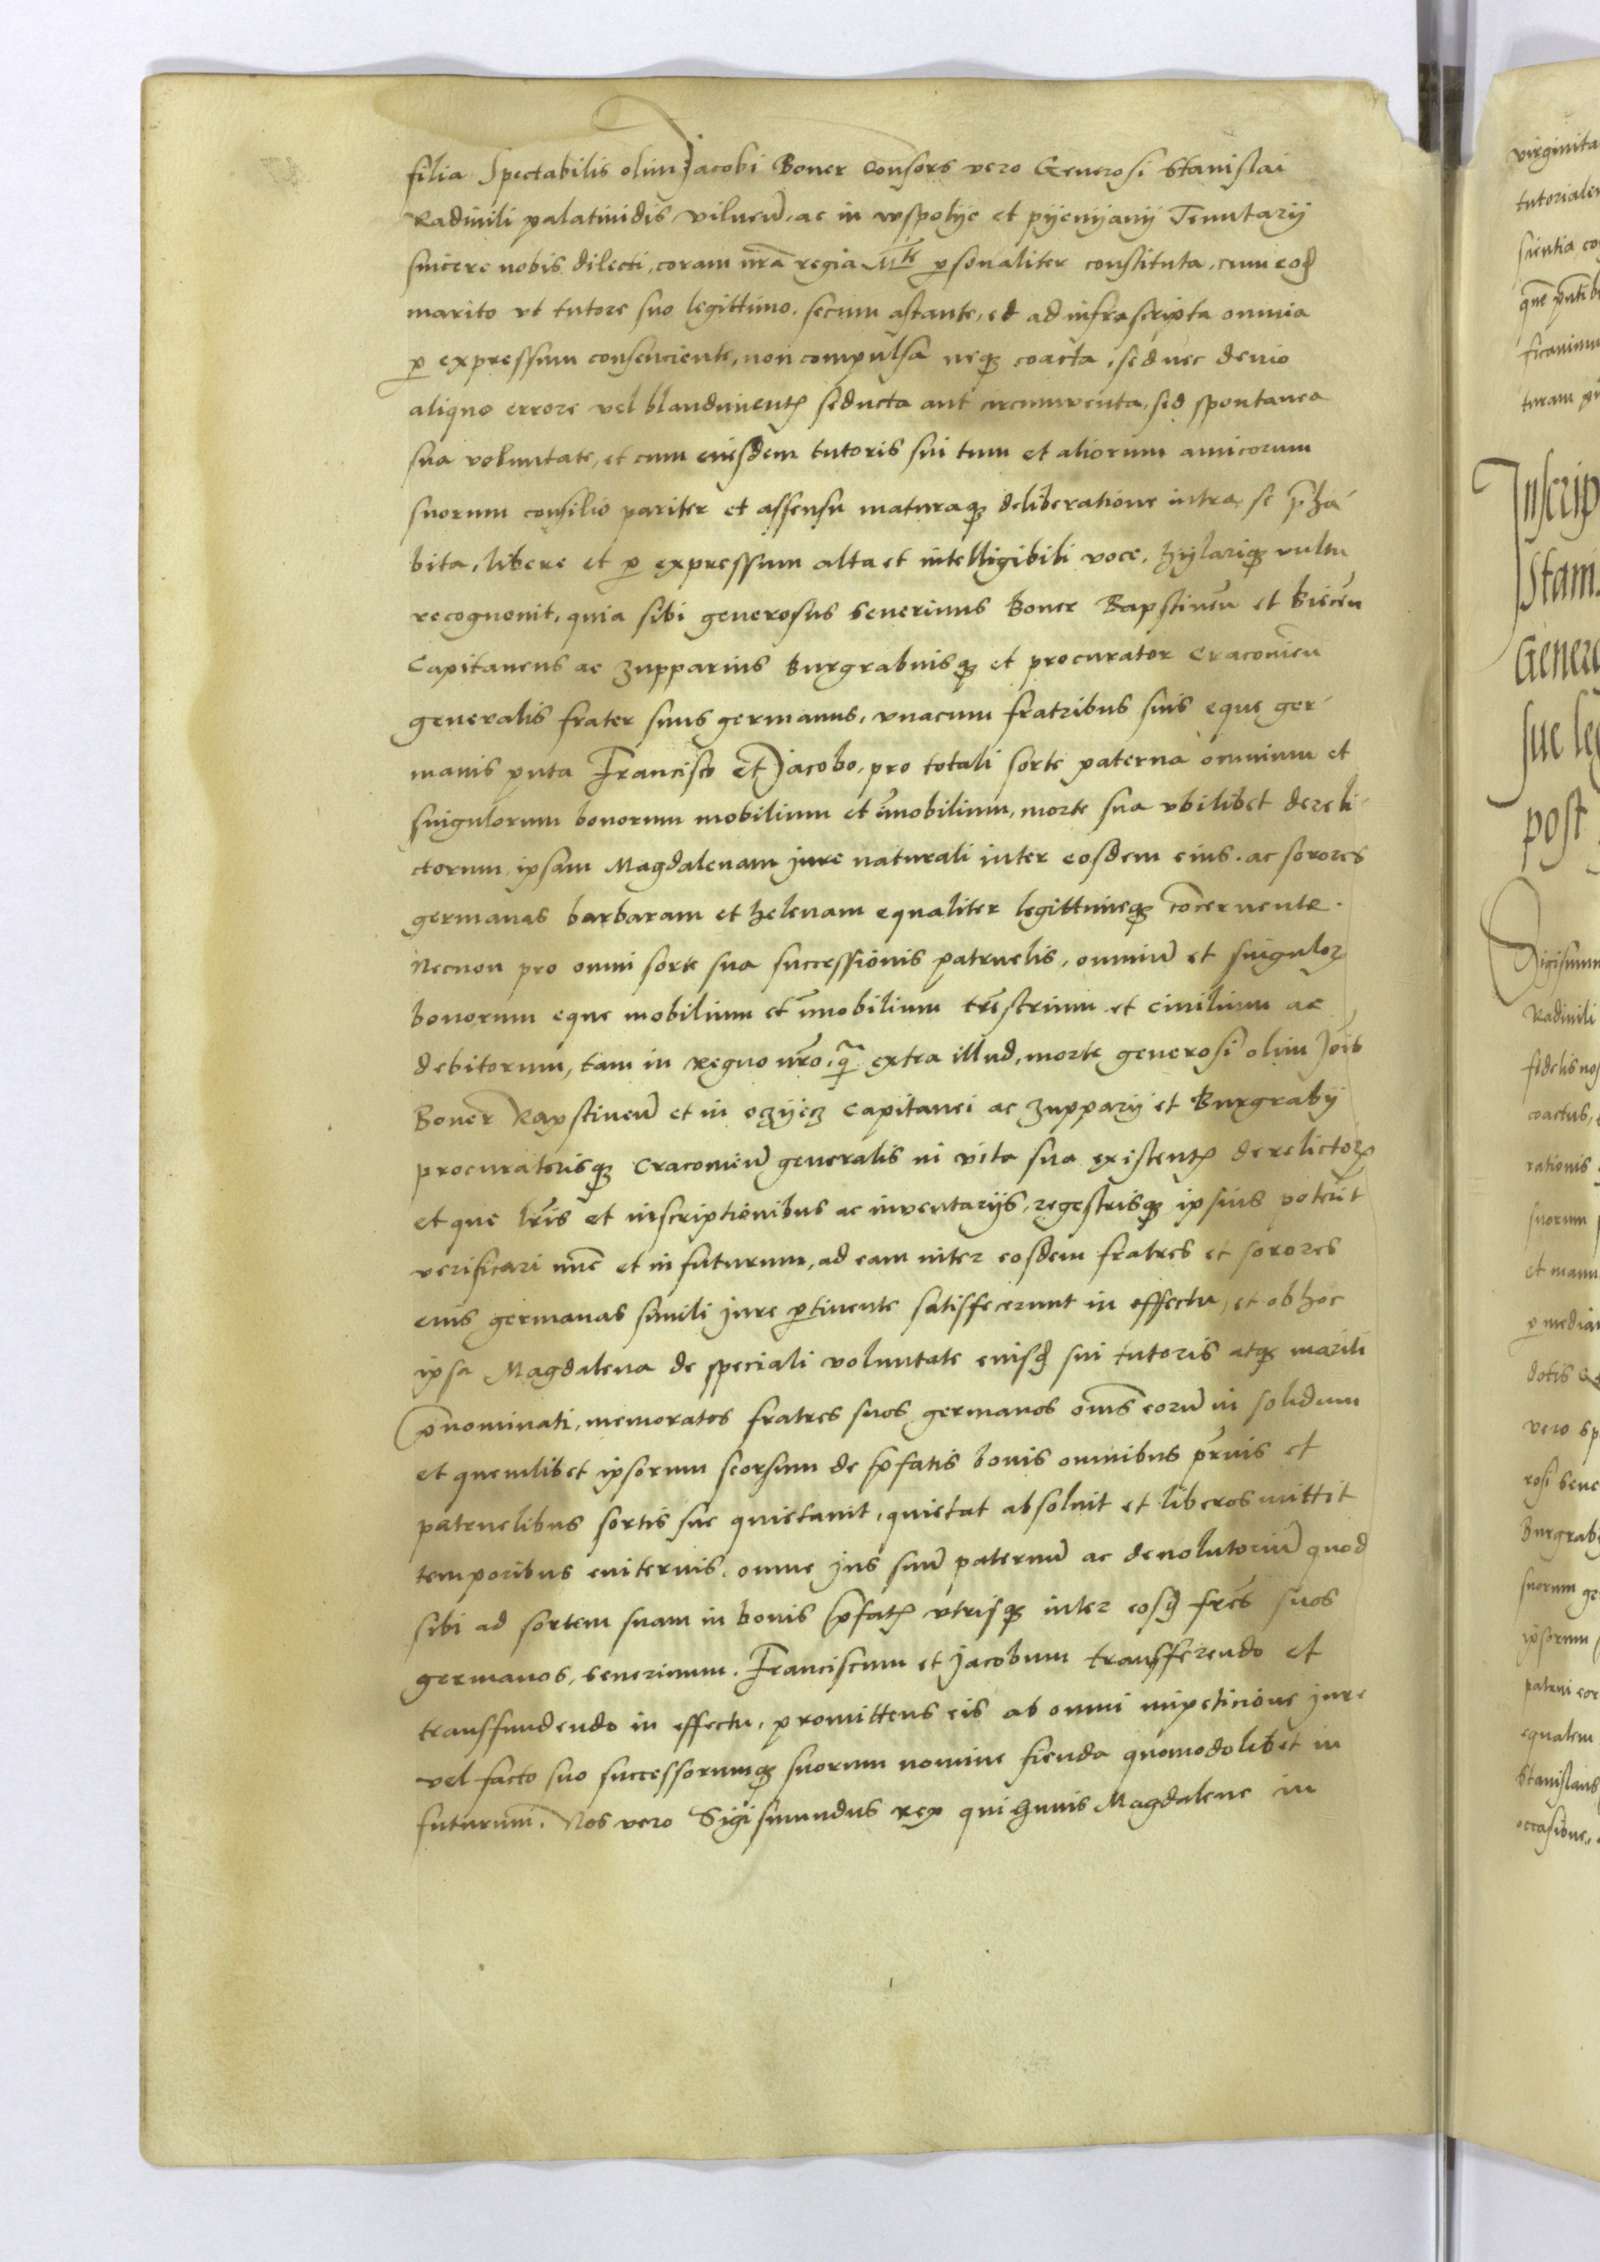 filia Spectabilis olim Jacobi Boner Consors vero Generosi Stanislai
Radivili palatinidis vilneñ, ac in wspolije et pijenijanij Tenutarij
sincere nobis dilecti, coram nrã regia Mte ꝑsonaliter constituta, cum eod
marito vt tutore suo legittimo, secum astante, et ad infrascripta omnia
ꝑ expressum consenciente, non compulsa neqꝫ coacta, sed nec devio
aliquo errore vel blandiment seducta aut circumventa, sed spontanea
sua voluntate, et cum eiusdem tutoris sui tum et aliorum amicorum
suorum consilio pariter et assensu maturaqꝫ deliberatione intra se p̃ha-
bita, libere et ꝑ expressum alta et intelligibili voce, hylariqꝫ vultu
recognouit, quia sibi generosus Seuerinus Boner Rapstineñ et Biecen
Capitaneus ac zupparius Burgrabiusqꝫ et procurator Cracouieñ
generalis frater suus germanus, vnacum fratribus suis eque ger-
manis puta Francisco et Jacobo, pro totali sorte paterna omnium et
singulorum bonorum mobilium et im̃obilium, morte sua vbilibet dereli-
ctorum, ipsam Magdalenam jure naturali inter eosdem eius ac sorores
germanas barbaram et helenam equaliter legittimeqꝫ cõcernente.
Necnon pro omni sorte sua successionis patruelis, omniũ et singuloꝝ
bonorum eque mobilium et im̃obilium trẽstrium et ciuilium ac
debitorum, tam in regno nrõ, q̃ extra illud, morte generosi olim Jois
Boner Rapstineñ et in ozijecz Capitanei ac zupparij et Burgrabij
procuratorisqꝫ Cracouieñ generalis in vita sua existent derelictoꝝ
et que lrĩs et inscriptionibus ac inventarijs, regestrisqꝫ ipsius poterit
verificari nũc et in futurum, ad eam inter eosdem fratres et sorores
eius germanas simili jure ꝑtinente satisfecerunt in effectu, et ob hoc
ipsa Magdalena de speciali voluntate eiusd sui tutoris atqꝫ mariti
p̃nominati, memoratos fratres suos germanos om̃s eorũ in solidum
et quemlibet ipsorum seorsum de p̃fatis bonis omnibus pr̃nis et
patruelibus sortis sue quietauit, quietat absoluit et liberos mittit
temporibus euiternis, omne jus suũ paternũ ac deuolutoriũ quod
sibi ad sortem suam in bonis p̃fat vtrisqꝫ inter eosd fres suos
germanos, Seuerinum, Franciscum et Jacobum transferendo et
transfundendo in effectu, promittens eis ab omni impeticione jure
vel facto suo successorumqꝫ suorum nomine fienda quomodolibet in
futurum. Nos vero Sigismundus rex qui huius Magdalene in